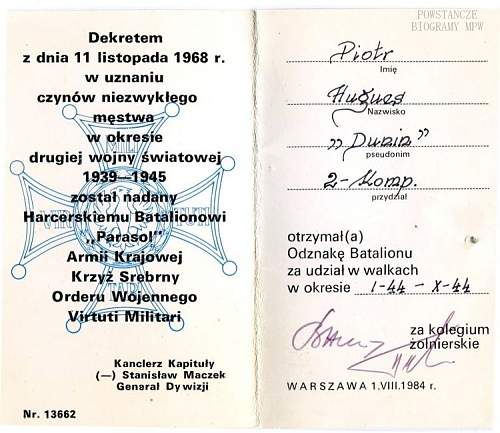 Dekretem
z dnia 11 listopada 1968 r.
w uznaniu
czynów niezwykłego
męstwa
w okresie
drugiej wojny światowej
1939—1945
został nadany
Harcerskiemu Batalionowi
„Parasol”
Armii Krajowej
Krzyż Srebrny
Orderu Wojennego
Virtuti Militari
VIR
TUTI
MILI
TARI
Kanclerz Kapituły
(—) Stanisław Maczek
Generał Dywizji
Nr. 13662
POWSTAŃCZE
BIOGRAMY MPW
Piotr
Imię
Hugues
Nazwisko
„Dunin”
pseudonim
2-Komp.
przydział
otrzymał(a)
Odznakę Batalionu
za udział w walkach
w okresie I-44 – X-44
za kolegium
żolnierskie
WARSZAWA 1.VIII.1984 r.